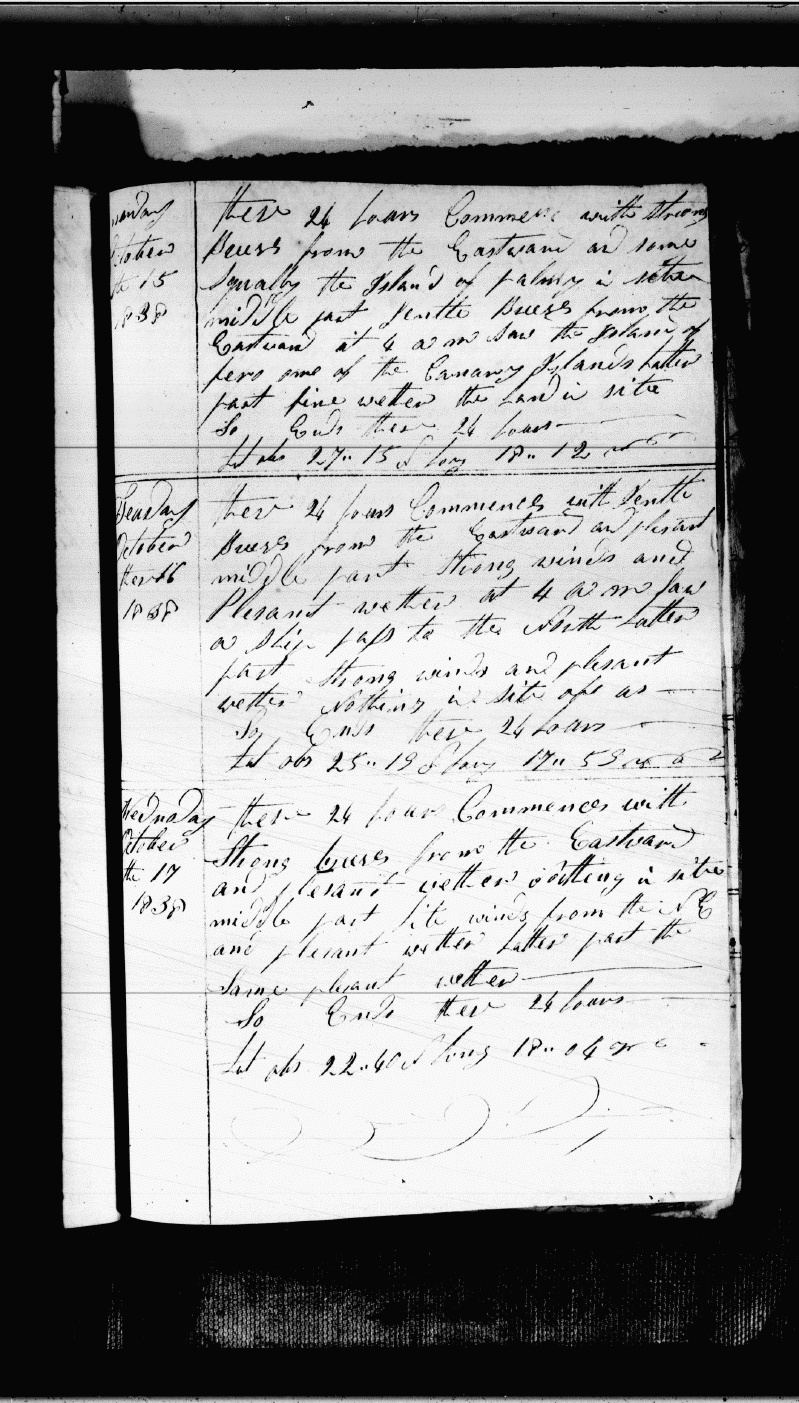 munday
October
the 15
1838
these 24 hours Commence with strong
Breses from the Eastward and some
Squally the Island of palmy in site
middle part Jentle Breses from the
Eastward at 4 a m saw the Island of
fero one of the Canary Islands latter
part fine wether the land in site
So Ends these 24 hours
Lat obs 27" 15 Long 18" 12
Teusday
October
the 16
1838
these 24 hours Commences with Jentle
Breses from the Eastward and plesant
middle part strong winds and
Plesant wether at 4 a m saw
a ship pass to the North latter
part strong winds and plesant
wether Nothing in site
So Ends these 24 hours
Lat obs 25" 19 Long 17" 59
Wednaday
October
the 17
1838
these 24 hours Commences with
Strong breses from the Eastward
and plesant wether nothing in site
middle part lite winds from the NE
and plesant wether latter part the
Same plesant wether
So Ends these 24 hours
Lat obs 22" 40 Long 18" 04